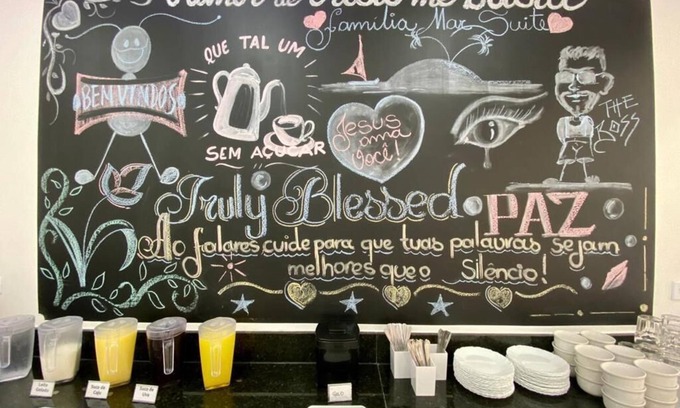 Amor de Cristo me Basta
Família Mar Suite
BEM VINDOS
QUE TAL UM
SEM AÇUCAR
Jesus
ama
você!
THE
BOSS
Truly Blessed
PAZ
Ao falares, cuide para que tuas palavras sejam
melhores que o Silêncio!
Suco de
Caju
Suco de
Uva
Café